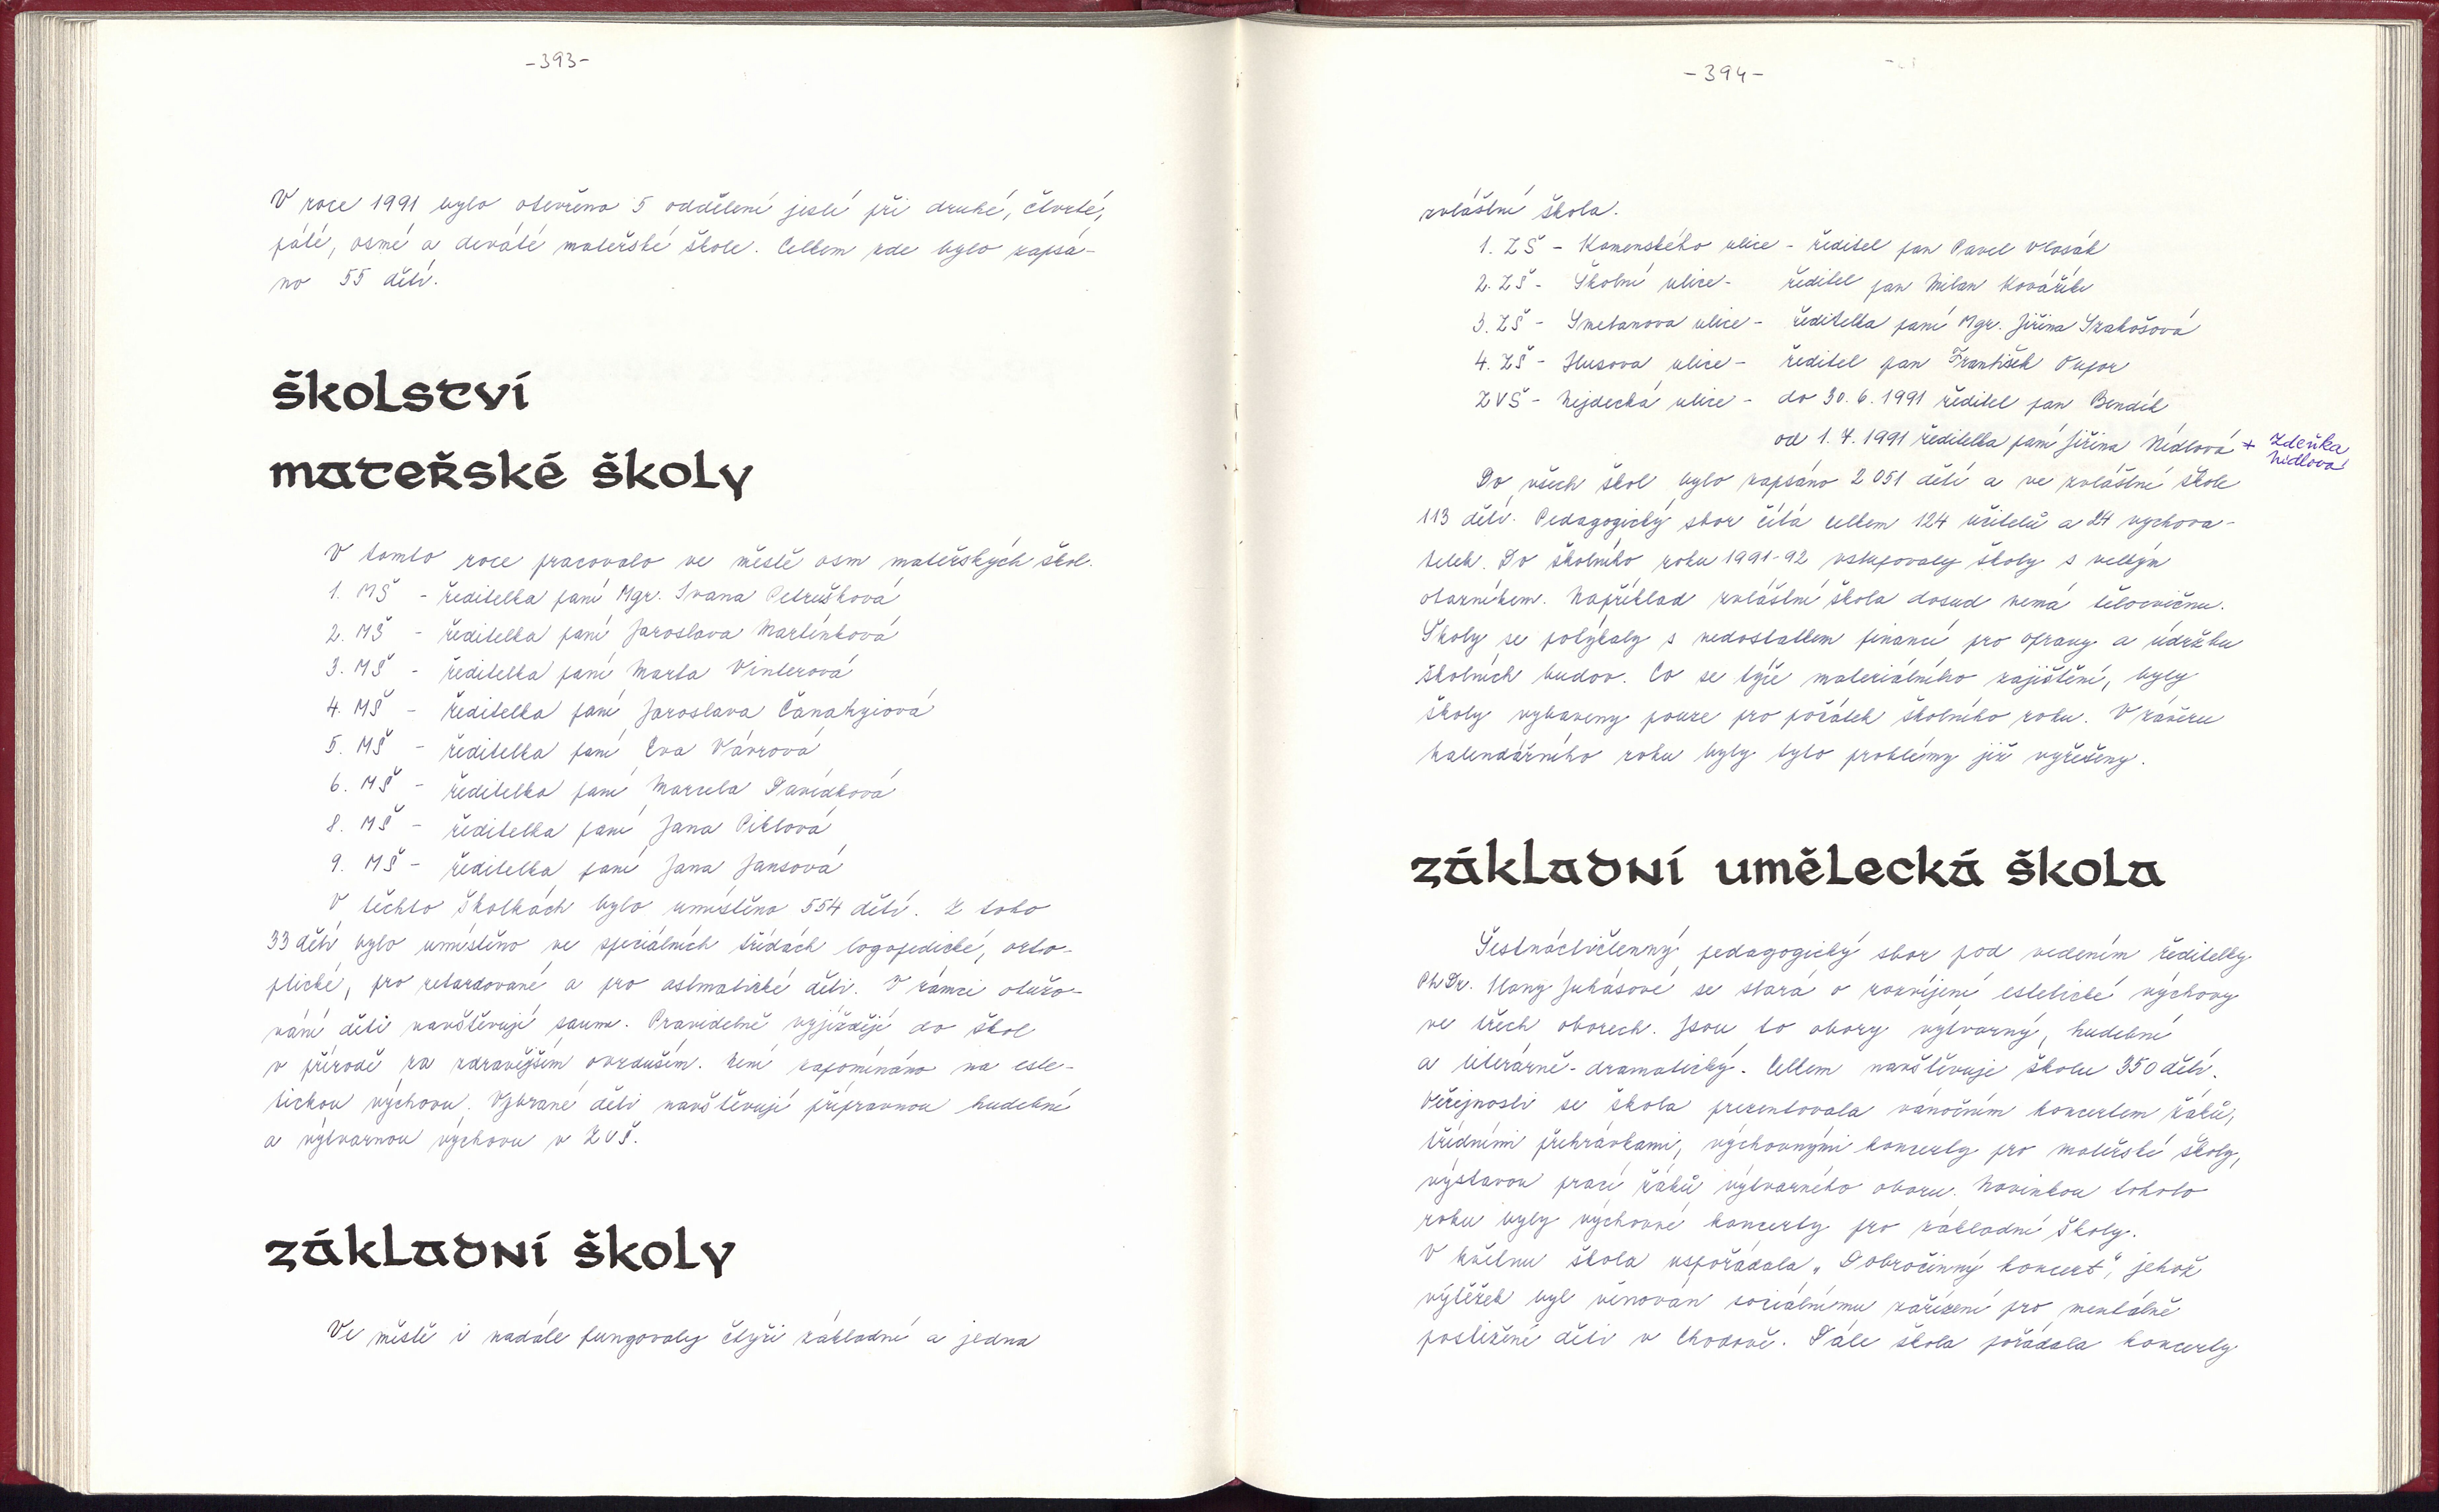 -393-
V roce 1991 bylo otevřeno 5 oddělení jeslí při druhé, čtvrté,
páté, osmé a deváté mateřské škole. Celkem zde bylo zapsá-
no 55 dětí.
školství
mateřské školy
V tomto roce pracovalo ve městě osm mateřských škol.
1. MŠ - ředitelka paní Mgr. Ivana Petrušková
2. MŠ - ředitelka paní Jaroslava Martínková
3. MŠ - ředitelka paní Marta Vinterová
4. MŠ - ředitelka paní Jaroslava Čanakyiová
5. MŠ - ředitelka paní Eva Vávrová
6. MŠ - ředitelka paní Marcela Davídková
8. MŠ - ředitelka paní Jana Piklová
9. MŠ - ředitelka paní Jana Jansová
V těchto školkách bylo umístěno 554 dětí. Z toho
33 dětí bylo umístěno ve speciálních třídách logopedické, orto-
ptické, pro retardované a pro astmatické děti. V rámci otužo-
vání děti navštěvují saunu. Pravidelně vyjíždějí do škol
v přírodě za zdravějším ovzduším. Není zapomínáno na este-
tickou výchovu. Vybrané děti navštěvují přípravnou hudební
a výtvarnou výchovu v ZUŠ.
základní školy
Ve městě i nadále fungovaly čtyři základní a jedna
-394-
zvláštní škola.
1. ZŠ - Komenského ulice - ředitel pan Pavel Vlasák
2. ZŠ - Školní ulice - ředitel pan Milan Kovářík
3. ZŠ - Smetanova ulice - ředitelka paní Mgr. Jiřina Szakošová
4. ZŠ - Husova ulice - ředitel pan František Pupor
ZVŠ - Nejdecká ulice - do 30. 6. 1991 ředitel pan Bendík
od 1. 7. 1991 ředitelka paní Jiřina Nídlová + Zdeňka
Nídlová
Do všech škol bylo zapsáno 2 051 dětí a ve zvláštní škole
113 dětí. Pedagogický sbor čítá celkem 124 učitelů a 24 vychova-
telek. Do školního roku 1991-92 vstupovaly školy s velkým
otazníkem. Například zvláštní škola dosud nemá tělocvičnu.
Školy se potýkaly s nedostatkem financí pro opravy a údržbu
školních budov. Co se týče materiálního zajištění, byly
školy vybaveny pouze pro počátek školního roku. V závěru
kalendářního roku byly tyto problémy již vyřešeny.
základní umělecká škola
Šestnáctičlenný pedagogický sbor pod vedením ředitelky
PhDr. Hany Juhásové se stará o rozvíjení estetické výchovy
ve třech oborech. Jsou to obory výtvarný, hudební
a literárně-dramatický. Celkem navštěvuje školu 350 dětí.
Veřejnosti se škola prezentovala vánočním koncertem žáků,
třídními přehrávkami, výchovnými koncerty pro mateřské školy,
výstavou prací žáků výtvarného oboru. Novinkou tohoto
roku byly výchovné koncerty pro základní školy.
V květnu škola uspořádala „Dobročinný koncert", jehož
výtěžek byl věnován sociálnímu zařízení pro mentálně
postižené děti v Chodově. Dále škola pořádala koncerty